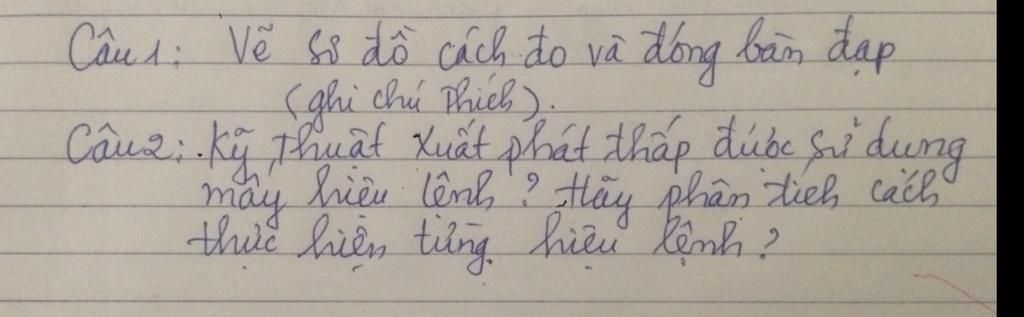 Câu 1: Vẽ sơ đồ cách đo và đóng bàn đạp
(ghi chú thích).
Câu 2: Kỹ thuật xuất phát thấp được sử dụng
mấy hiệu lệnh? Hãy phân tích cách
thực hiện từng hiệu lệnh?